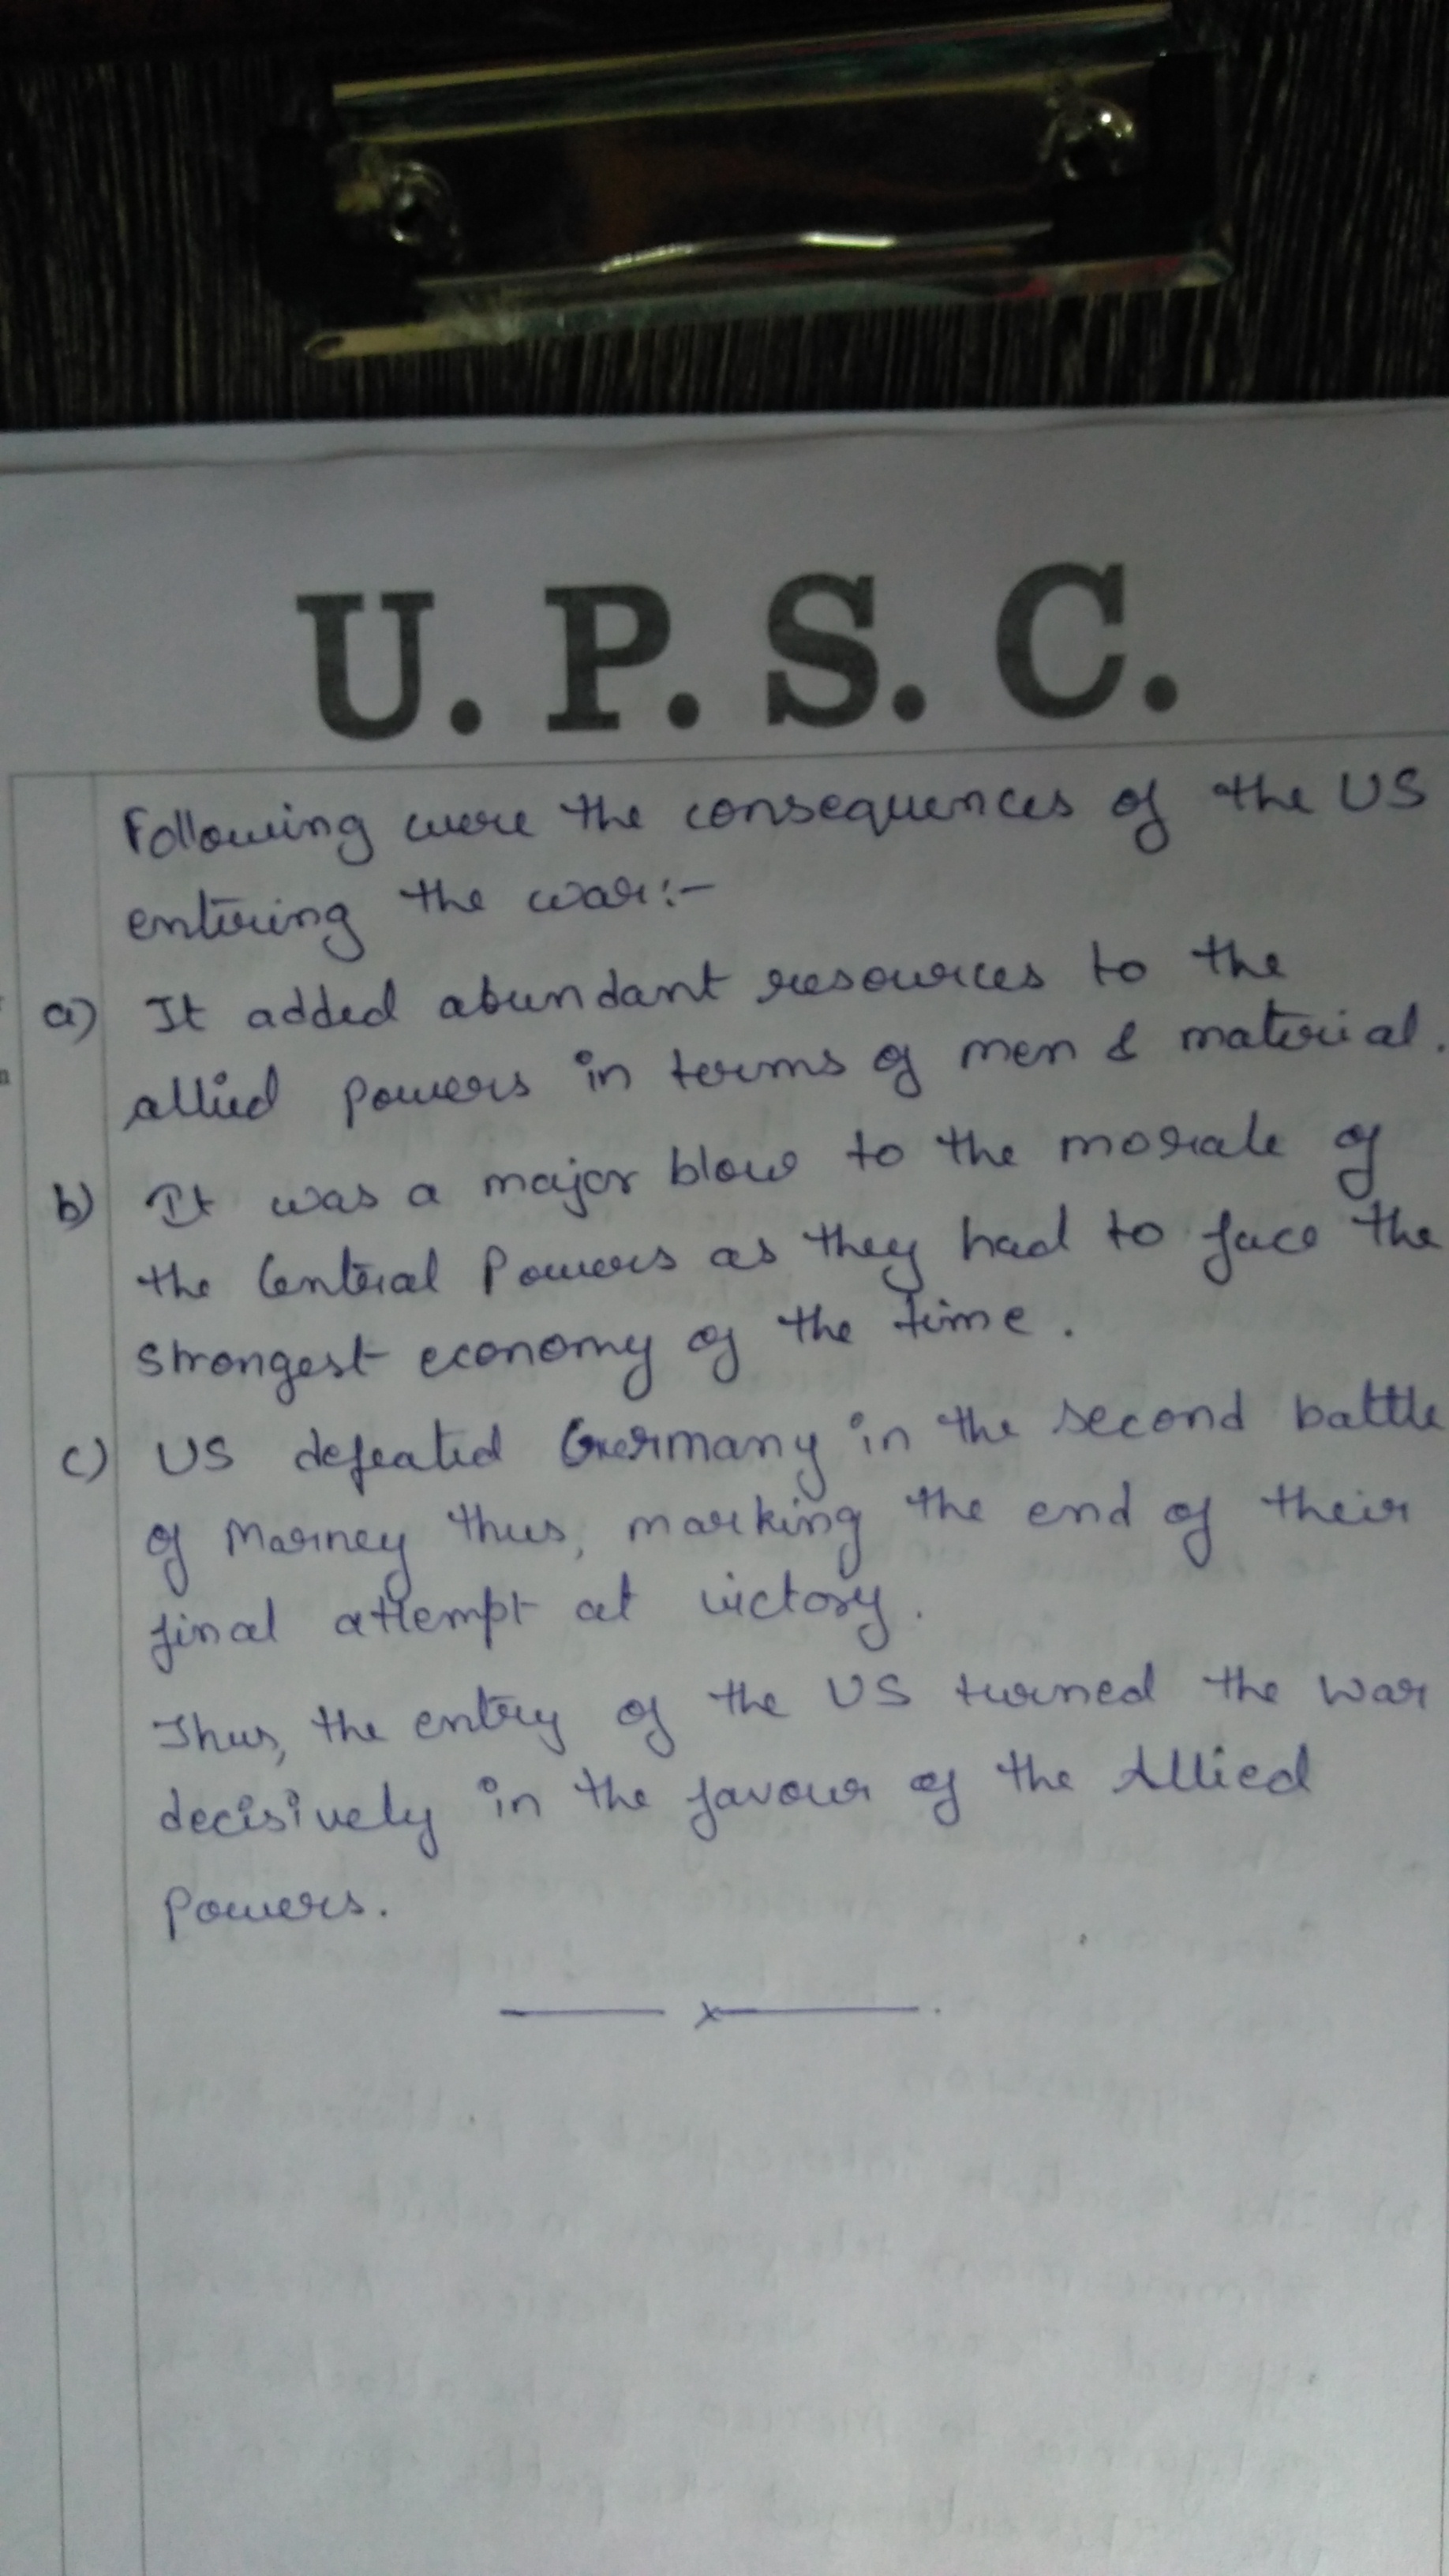 U. P. S. C.
Following were the consequences of the US
entering the war:-
a) It added abundant resources to the
allied powers in terms of men & material.
b) It was a major blow to the morale of
the Central Powers as they had to face the
strongest economy of the time.
c) US defeated Germany in the second battle
of Marney thus, marking the end of their
final attempt at victory.
Thus, the entry of the US turned the war
decisively in the favour of the Allied
Powers.